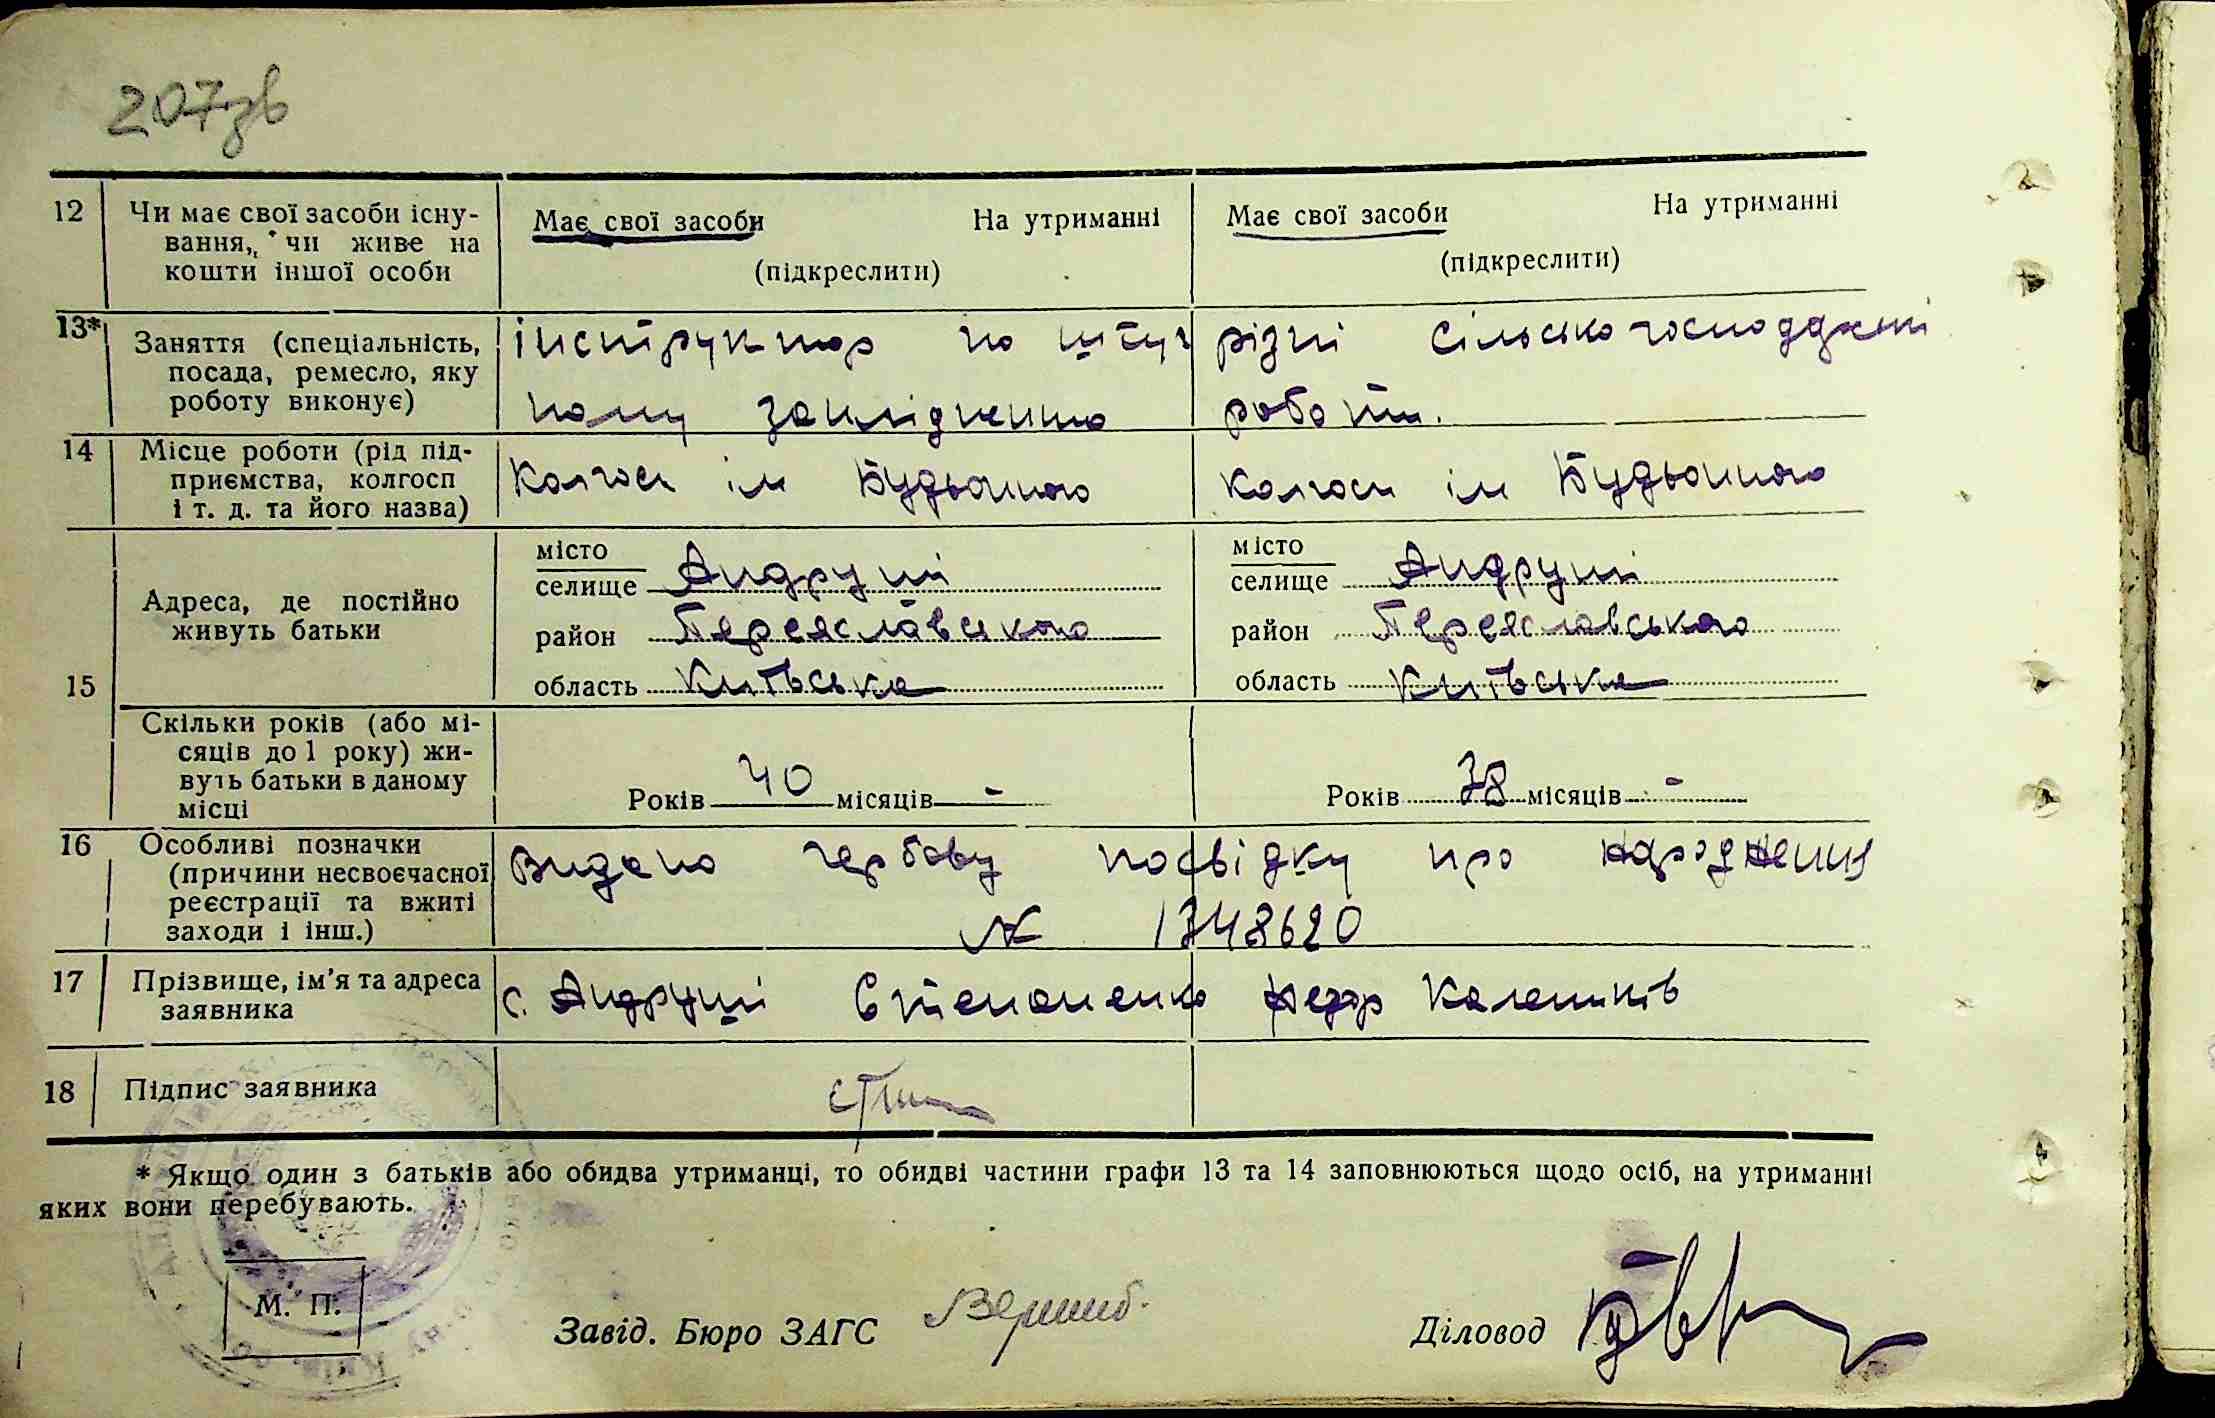 207зв
12 Чи має свої засоби існу- Має свої засоби На утриманні Має свої засоби На утриманні
вання, чи живе на
кошти іншої особи (підкреслити) (підкреслити)
13* Заняття (спеціальність, інструктор по штуч різні сільсько господджені
посада, ремесло, яку
роботу виконує) ному заплідненню роботи.
14 Місце роботи (рід під-
приємства, колгосп Колгосп ім Будьоного колгосп ім Будьоного
і т. д. та його назва)
15 Адреса, де постійно живуть батьки
місто
селище Андруші
район Переяславського
область Київська
місто
селище Андруші
район Переяславського
область Київська
Скільки років (або мі-
сяців до 1 року) жи-
вуть батьки в даному
місці Років 40 місяців - Років 38 місяців -
16 Особливі позначки
(причини несвоєчасної Видано гербову посвідку про народження
реєстрації та вжиті
заходи і інш.) № 1748620
17 Прізвище, ім'я та адреса с. Андруші Степаненко
заявника
18 Підпис заявника
* Якщо один з батьків або обидва утриманці, то обидві частини графи 13 та 14 заповнюються щодо осіб, на утриманні
яких вони перебувають.
М. П.
Завід. Бюро ЗАГС Діловод